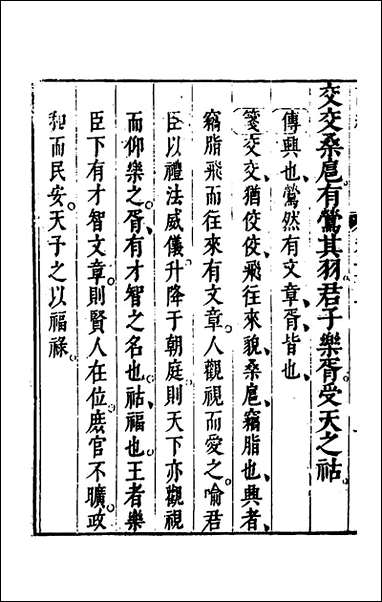 交交桑扈有鶯其羽君子樂胥受天之祜
傳興也鶯然有文章胥皆也
箋交交猶佼佼飛往來貌桑扈竊脂也興者
竊脂飛而往來有文章人觀視而愛之喻君
臣以禮法威儀升降于朝庭則天下亦觀視
而仰樂之胥有才智之名也祜福也王者樂
臣下有才智文章則賢人在位庶官不曠政
和而民安天子之以福祿